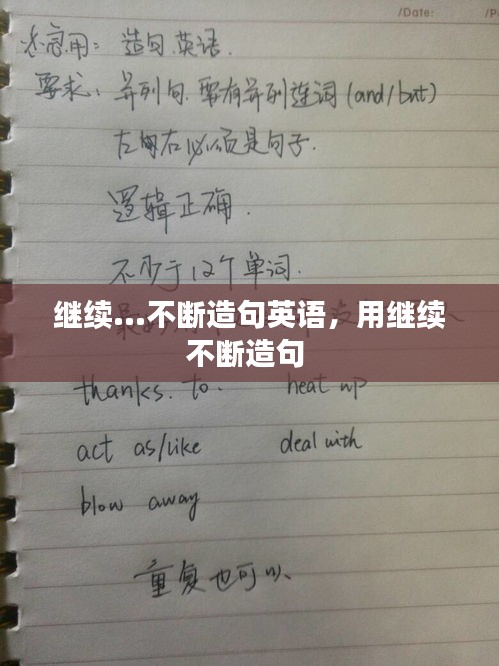 /Date: /P
急用：造句.英语.
要求：并列句.要有并列连词(and/but)
左句右必须是句子.
逻辑正确.
不少于12个单词.
继续...不断造句英语，用继续
不断造句
thanks. to. heat up
act as/like deal with
blow away
重复也可以、